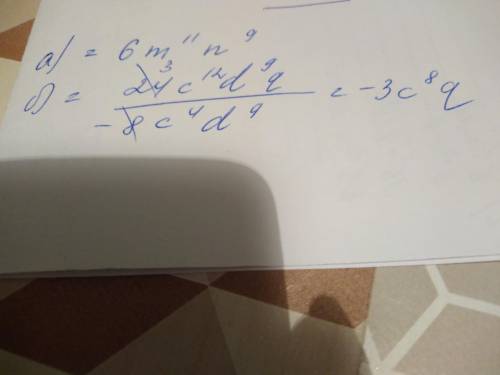 а) = 6m¹¹n⁹
б) = 24³c¹²d⁹q / -8c⁴d⁹ = -3c⁸q